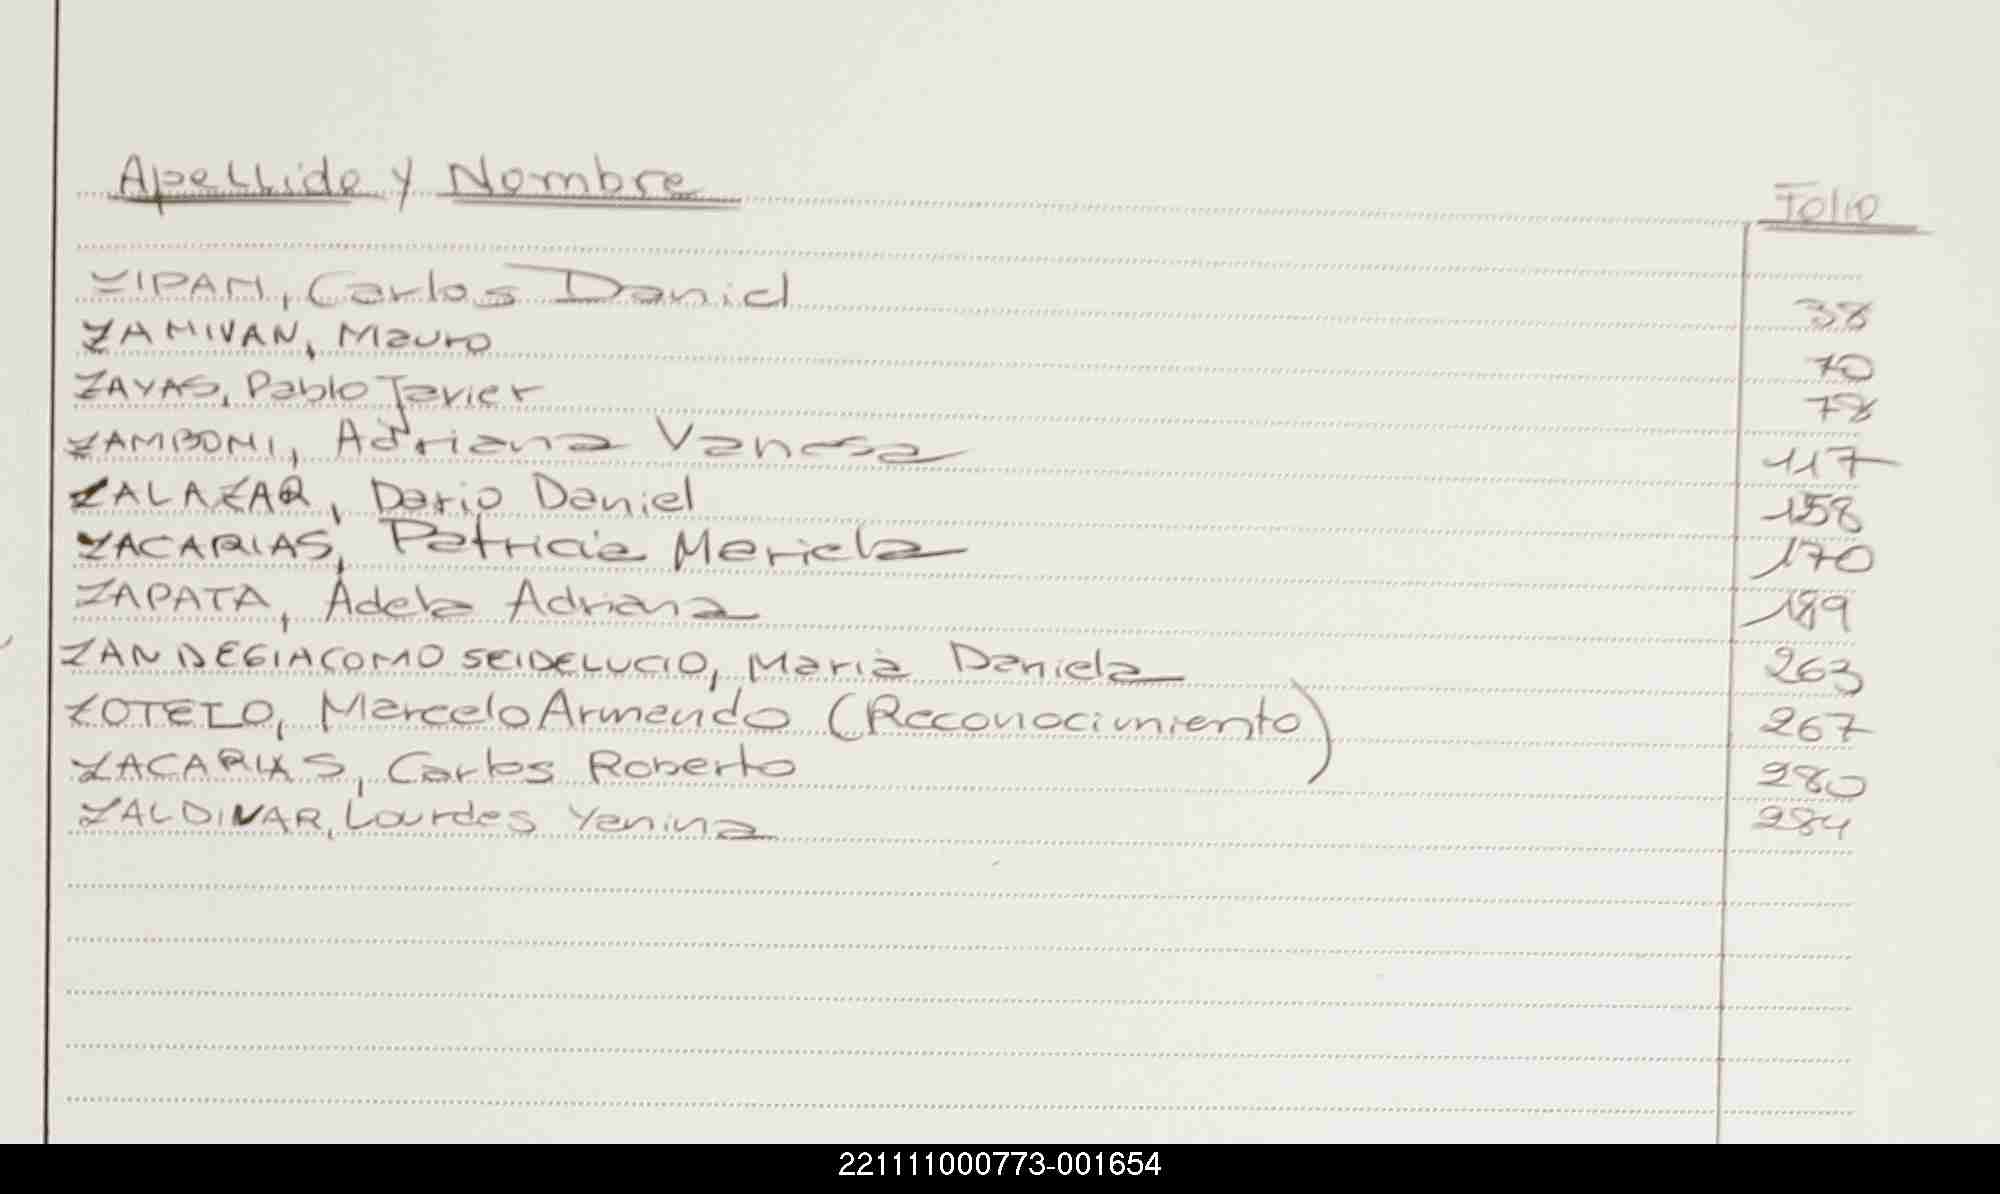 Apellido y Nombre Folio
ZIPAN, Carlos Daniel 38
ZAMIVAN, Mauro 70
ZAYAS, Pablo Javier 78
ZAMBONI, Adriana Vanesa 117
ZALAZAR, Dario Daniel 158
ZACARIAS, Patricia Mariela 170
ZAPATA, Adela Adriana 189
ZANDEGIACOMO SEIDELUCIO, Maria Daniela 263
ZOTELO, Marcelo Armando (Reconocimiento) 267
ZACARIAS, Carlos Roberto 280
ZALDIVAR, Lourdes Yanina 284
221111000773-001654